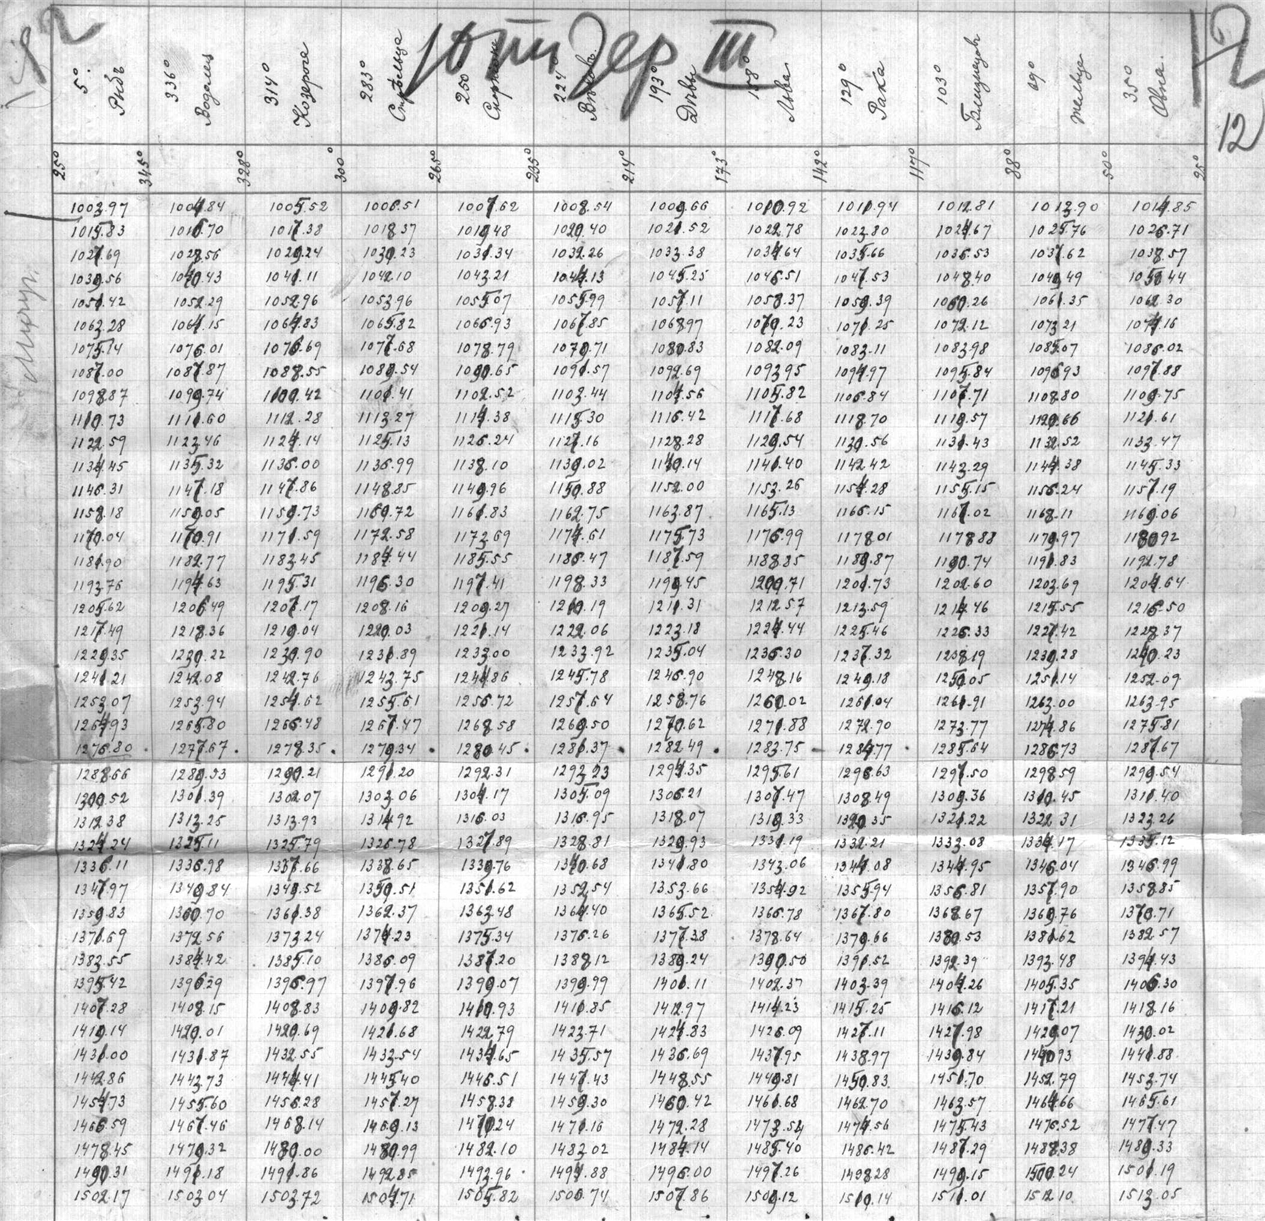 12 Юпитер III 12
12
5° Рыбъ 336° Водолея 314° Козерога 283° Стрѣльца 250 Скорпіона 224° Вѣсовъ 193° Дѣвы 158° Льва 129° Рака 103° Близнецовъ 69° Тельца 35° Овна.
25° 345° 328° 300° 265° 235° 214° 173° 142° 117° 88° 50° 25°
1003.97 1004.84 1005.52 1006.51 1007.62 1008.54 1009.66 1010.92 1011.94 1012.81 1013.90 1014.85
1015.83 1016.70 1017.38 1018.37 1019.48 1020.40 1021.52 1022.78 1023.80 1024.67 1025.76 1026.71
1027.69 1028.56 1029.24 1030.23 1031.34 1032.26 1033.38 1034.64 1035.66 1036.53 1037.62 1038.57
1039.56 1040.43 1041.11 1042.10 1043.21 1044.13 1045.25 1046.51 1047.53 1048.40 1049.49 1050.44
1051.42 1052.29 1052.96 1053.96 1055.07 1055.99 1057.11 1058.37 1059.39 1060.26 1061.35 1062.30
1063.28 1064.15 1064.83 1065.82 1066.93 1067.85 1068.97 1070.23 1071.25 1072.12 1073.21 1074.16
1075.14 1076.01 1076.69 1077.68 1078.79 1079.71 1080.83 1082.09 1083.11 1083.98 1085.07 1086.02
1087.00 1087.87 1088.55 1089.54 1090.65 1091.57 1092.69 1093.95 1094.97 1095.84 1096.93 1097.88
1098.87 1099.74 1100.42 1101.41 1102.52 1103.44 1104.56 1105.82 1106.84 1107.71 1108.80 1109.75
1110.73 1111.60 1112.28 1113.27 1114.38 1115.30 1116.42 1117.68 1118.70 1119.57 1120.66 1121.61
1122.59 1123.46 1124.14 1125.13 1126.24 1127.16 1128.28 1129.54 1130.56 1131.43 1132.52 1133.47
1134.45 1135.32 1136.00 1136.99 1138.10 1139.02 1140.14 1141.40 1142.42 1143.29 1144.38 1145.33
1146.31 1147.18 1147.86 1148.85 1149.96 1150.88 1152.00 1153.26 1154.28 1155.15 1156.24 1157.19
1158.18 1159.05 1159.73 1160.72 1161.83 1162.75 1163.87 1165.13 1166.15 1167.02 1168.11 1169.06
1170.04 1170.91 1171.59 1172.58 1173.69 1174.61 1175.73 1176.99 1178.01 1178.88 1179.97 1180.92
1181.90 1182.77 1183.45 1184.44 1185.55 1186.47 1187.59 1188.85 1189.87 1190.74 1191.83 1192.78
1193.76 1194.63 1195.31 1196.30 1197.41 1198.33 1199.45 1200.71 1201.73 1202.60 1203.69 1204.64
1205.62 1206.49 1207.17 1208.16 1209.27 1210.19 1211.31 1212.57 1213.59 1214.46 1215.55 1216.50
1217.49 1218.36 1219.04 1220.03 1221.14 1222.06 1223.18 1224.44 1225.46 1226.33 1227.42 1228.37
1229.35 1230.22 1230.90 1231.89 1233.00 1233.92 1235.04 1236.30 1237.32 1238.19 1239.28 1240.23
1241.21 1242.08 1242.76 1243.75 1244.86 1245.78 1246.90 1248.16 1249.18 1250.05 1251.14 1252.09
1253.07 1253.94 1254.62 1255.61 1256.72 1257.64 1258.76 1260.02 1261.04 1261.91 1263.00 1263.95
1264.93 1265.80 1266.48 1267.47 1268.58 1269.50 1270.62 1271.88 1272.90 1273.77 1274.86 1275.81
1276.80 1277.67 1278.35 1279.34 1280.45 1281.37 1282.49 1283.75 1284.77 1285.64 1286.73 1287.67
1288.66 1289.53 1290.21 1291.20 1292.31 1293.23 1294.35 1295.61 1296.63 1297.50 1298.59 1299.54
1300.52 1301.39 1302.07 1303.06 1304.17 1305.09 1306.21 1307.47 1308.49 1309.36 1310.45 1311.40
1312.38 1313.25 1313.93 1314.92 1316.03 1316.95 1318.07 1319.33 1320.35 1321.22 1322.31 1323.26
1324.24 1325.11 1325.79 1326.78 1327.89 1328.81 1329.93 1331.19 1332.21 1333.08 1334.17 1335.12
1336.11 1336.98 1337.66 1338.65 1339.76 1340.68 1341.80 1343.06 1344.08 1344.95 1346.04 1346.99
1347.97 1348.84 1349.52 1350.51 1351.62 1352.54 1353.66 1354.92 1355.94 1356.81 1357.90 1358.85
1359.83 1360.70 1361.38 1362.37 1363.48 1364.40 1365.52 1366.78 1367.80 1368.67 1369.76 1370.71
1371.69 1372.56 1373.24 1374.23 1375.34 1376.26 1377.38 1378.64 1379.66 1380.53 1381.62 1382.57
1383.55 1384.42 1385.10 1386.09 1387.20 1388.12 1389.24 1390.50 1391.52 1392.39 1393.48 1394.43
1395.42 1396.29 1396.97 1397.96 1399.07 1399.99 1401.11 1402.37 1403.39 1404.26 1405.35 1406.30
1407.28 1408.15 1408.83 1409.82 1410.93 1411.85 1412.97 1414.23 1415.25 1416.12 1417.21 1418.16
1419.14 1420.01 1420.69 1421.68 1422.79 1423.71 1424.83 1426.09 1427.11 1427.98 1429.07 1430.02
1431.00 1431.87 1432.55 1433.54 1434.65 1435.57 1436.69 1437.95 1438.97 1439.84 1440.93 1441.88
1442.86 1443.73 1444.41 1445.40 1446.51 1447.43 1448.55 1449.81 1450.83 1451.70 1452.79 1453.74
1454.73 1455.60 1456.28 1457.27 1458.38 1459.30 1460.42 1461.68 1462.70 1463.57 1464.66 1465.61
1466.59 1467.46 1468.14 1469.13 1470.24 1471.16 1472.28 1473.54 1474.56 1475.43 1476.52 1477.47
1478.45 1479.32 1480.00 1480.99 1482.10 1483.02 1484.14 1485.40 1486.42 1487.29 1488.38 1489.33
1490.31 1491.18 1491.86 1492.85 1493.96 1494.88 1496.00 1497.26 1498.28 1499.15 1500.24 1501.19
1502.17 1503.04 1503.72 1504.71 1505.82 1506.74 1507.86 1509.12 1510.14 1511.01 1512.10 1513.05